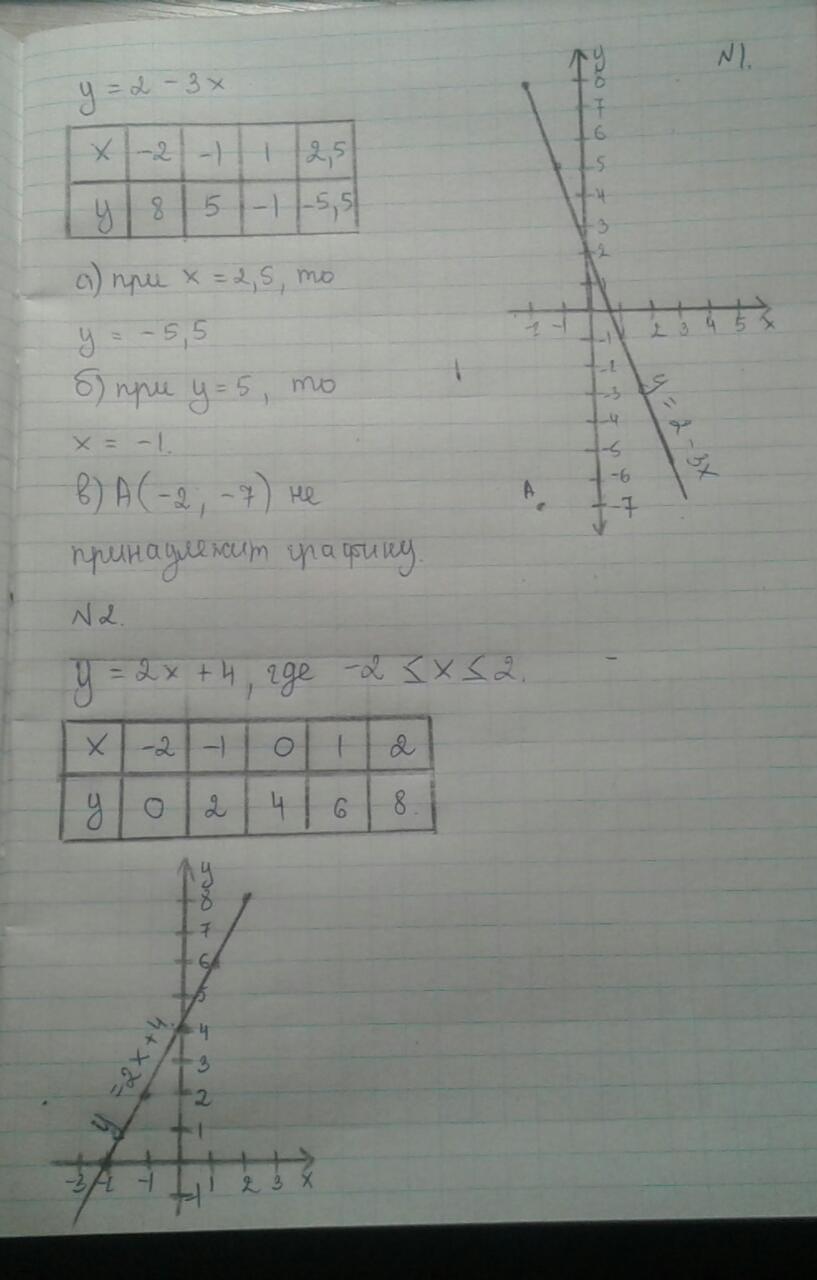 N1.
y = 2 - 3x
x -2 -1 1 2,5
y 8 5 -1 -5,5
а) при x = 2,5, то
y = -5,5
б) при y = 5, то
x = -1.
в) A(-2, -7) не
принадлежит графику.
y
8
7
6
5
4
3
2
1
-2 -1 1 2 3 4 5 x
-1
-2
-3
-4
-5
-6
-7
y = 2 - 3x
A
N2.
y = 2x + 4, где -2 ≤ x ≤ 2.
x -2 -1 0 1 2
y 0 2 4 6 8.
y
8
7
6
5
4
3
2
1
-3 -2 -1 1 2 3 x
-1
y = 2x + 4